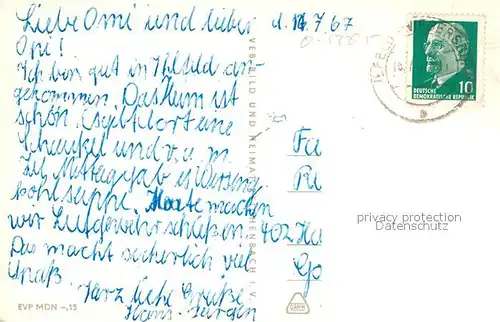 Liebe Omi und lieber
Opi!
d. 14.7.67
Ich bin gut in Ilfeld an-
gekommen. Das Heim ist
schön. Es gibt dort eine
Schaukel und v. a. m.
Zu Mittag gab es Wirsing-
kohlsuppe. Heute machen
wir Luftgewehrschießen.
Das macht sicherlich viel
Spaß.
Herzliche Grüße
Hans-Jürgen
Fa
402 Ha
Go
DEUTSCHE
DEMOKRATISCHE REPUBLIK
10
privacy protection
Datenschutz
VEB BILD UND HEIMAT REICHENBACH I. V.
EVP MDN -,15